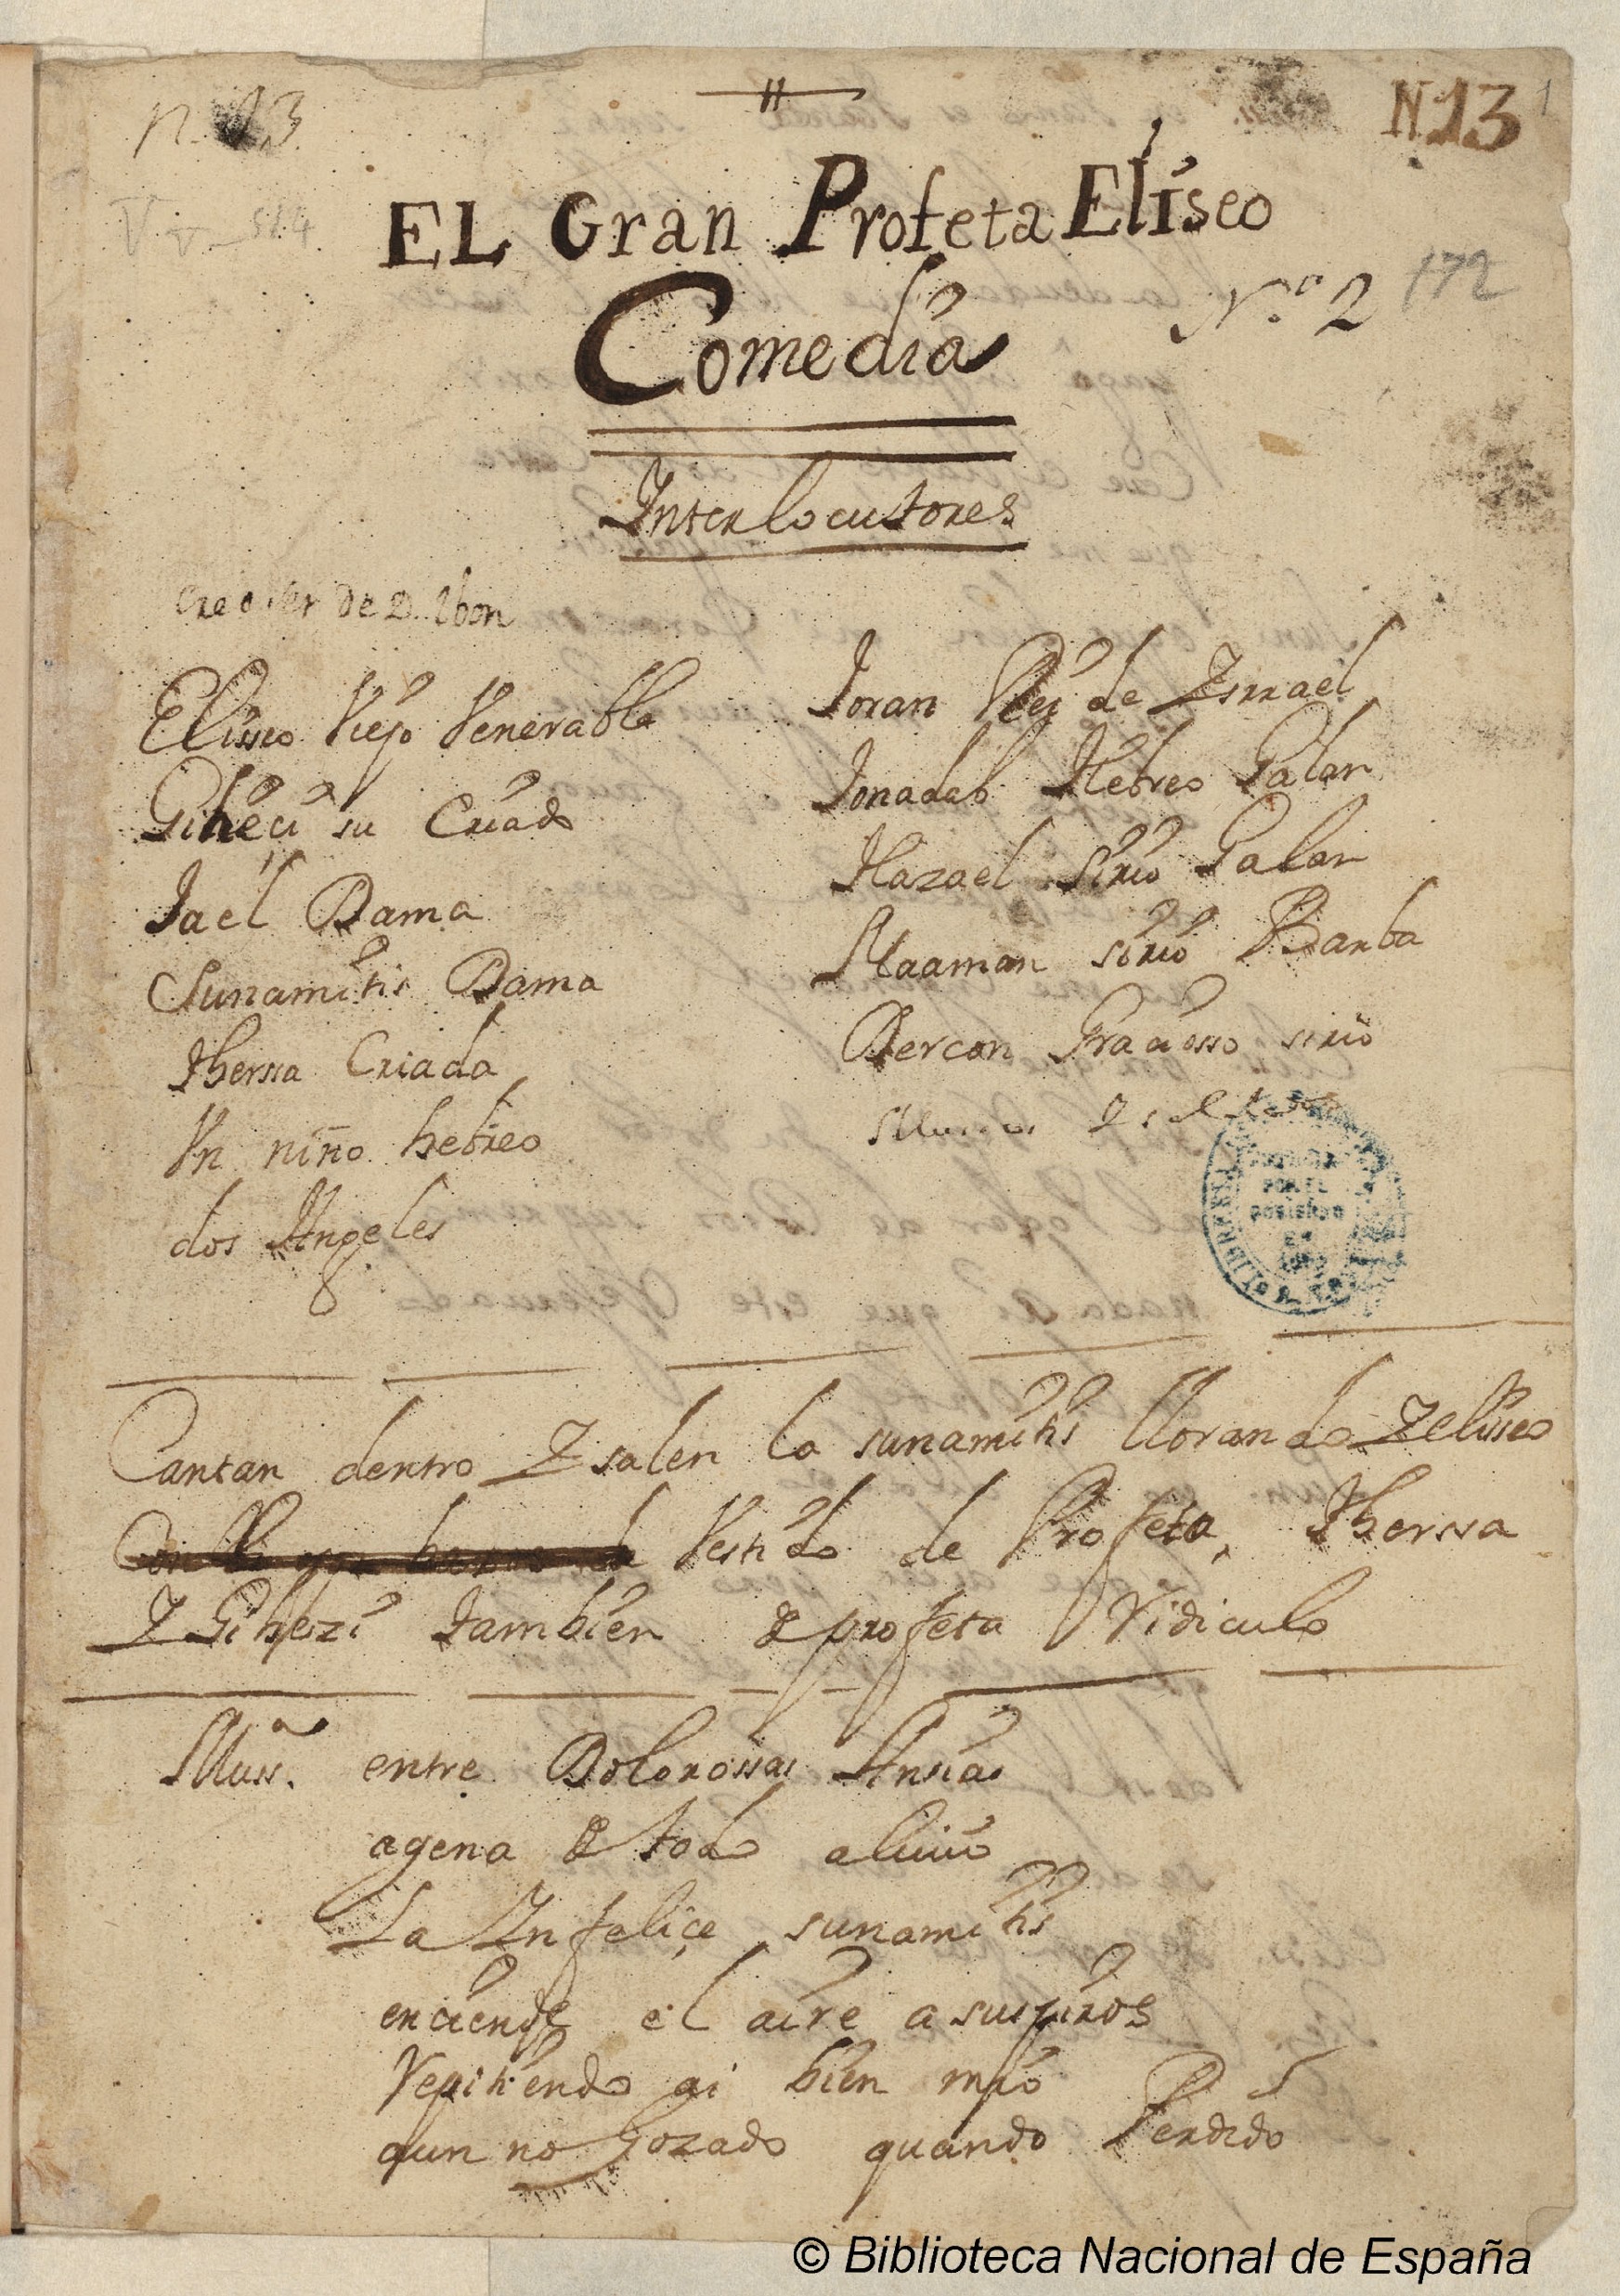 n. 13
N 13
1
EL Gran Profeta Eliseo
Comedia
N.º 2
172
Interlocutores
creo ser de D.
Elisseo Viejo Venerable
Giheci su Criado
Jael Dama
Sunamitis Dama
Thersa Criada
Vn niño hebreo
dos Angeles
Joran Rey de Israel
Jonadab Hebreo Galan
Hazael Sirio Galan
Naaman sirio Barba
Bercon Graciosso sirio
Cantan dentro I salen la sunamitis llorando I eliseo
Vestido de Profeta, Thersa
I Gihezi tambien de profeta Ridiculo
Muss.ª entre Dolorossas Ansias
agena de todo aliuio
La Infeliçe sunamitis
enciende el aire a suspiros
Repitiendo ai bien mio
aun no gozado quando Perdido
© Biblioteca Nacional de España